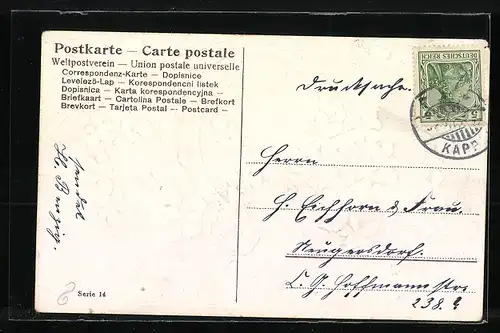 Postkarte — Carte postale
Weltpostverein — Union postale universelle
Correspondenz-Karte — Dopisnice
Levelező-Lap — Korespondencni listek
Dopisnica — Karta korespondencyjna —
Briefkaart — Cartolina Postale — Brefkort
Brevkort — Tarjeta Postal — Postcard —
Drucksache.
DEUTSCHES REICH
5 5
KAPP
Herrn
H. Eichhorn & Frau.
Neugersdorf.
C. G. Hoffmannstr.
238.
Serie 14